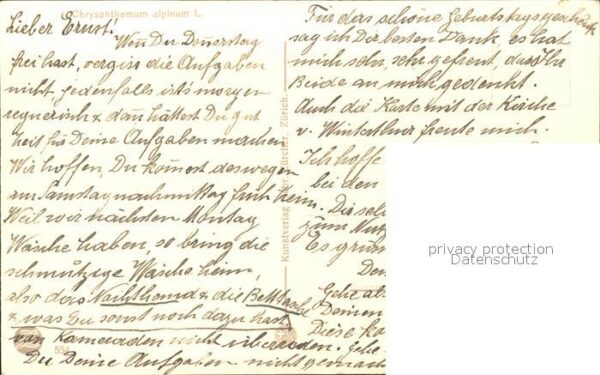 Chrysanthemum alpinum L.
Lieber Ernst.
Wen̄ Du Don̄erstag
frei hast, vergiss die Aufgaben
nicht, jedenfalls ist's morgen
regnerisch & dan̄ hättest Du gut
Zeit für Deine Aufgaben machen
Wir hoffen, Du kom̄st deswegen
am Samstagnachmittag früh heim.
Weil wir nächsten Montag
Wäsche haben, so bring die
schmutzige Wäsche heim,
also das Nachthemd & die Bettlache
& was Du sonst noch dazu hast
von Kameraden nicht überreden. Gehe
Du Deine Aufgaben nicht gemacht
554
Kunstverlag Zürcher, Zürich.
Für das schöne Geburtstagsgeschenk
sag ich Dir besten Dank, es hat
mich sehr, sehr gefreut, dass Ihr
Beide an mich gedenkt.
Auch die Karte mit der Kirche
v. Winterthur freute mich.
Ich hoffe
bei den
Du sol
zum
Es grüs
Den
Gehe al
Deinen
Diese Ka
privacy protection
Datenschutz